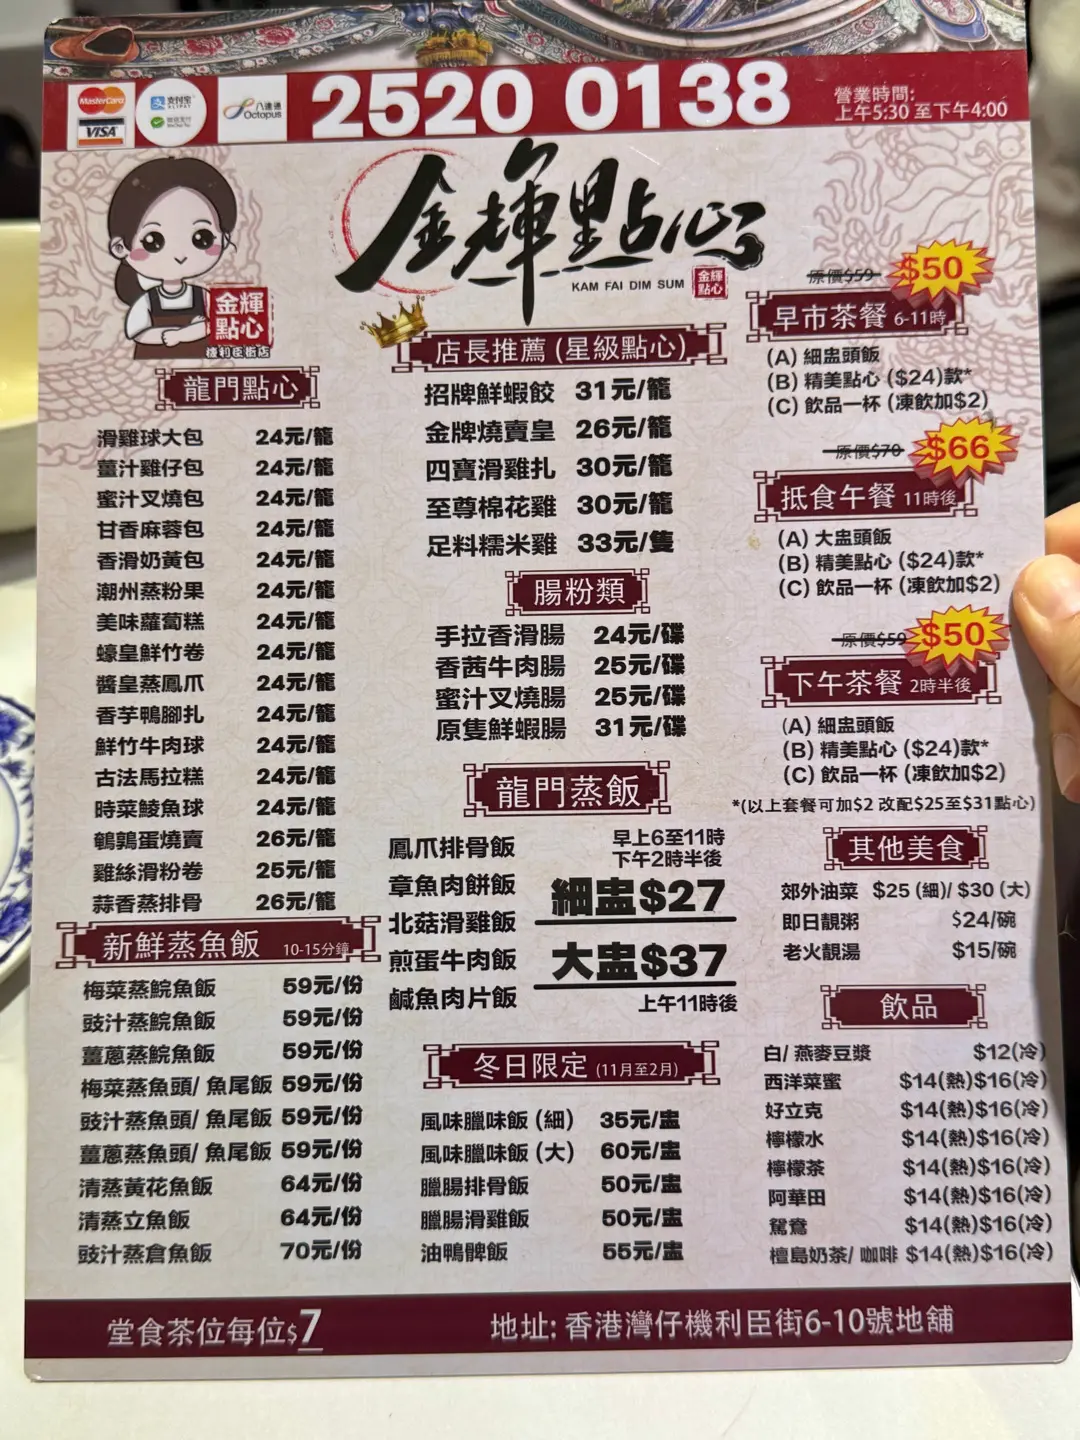 MasterCard
VISA
支付宝
ALIPAY
微信支付
WeChat Pay
八達通
Octopus
2520 0138
營業時間:
上午5:30 至下午4:00
金輝點心
KAM FAI DIM SUM
金輝
點心
金輝
點心
機利臣街店
龍門點心
滑雞球大包 24元/籠
薑汁雞仔包 24元/籠
蜜汁叉燒包 24元/籠
甘香麻蓉包 24元/籠
香滑奶黃包 24元/籠
潮州蒸粉果 24元/籠
美味蘿蔔糕 24元/籠
蠔皇鮮竹卷 24元/籠
醬皇蒸鳳爪 24元/籠
香芋鴨腳扎 24元/籠
鮮竹牛肉球 24元/籠
古法馬拉糕 24元/籠
時菜鯪魚球 24元/籠
鵪鶉蛋燒賣 26元/籠
雞絲滑粉卷 25元/籠
蒜香蒸排骨 26元/籠
新鮮蒸魚飯 10-15分鐘
梅菜蒸鯇魚飯 59元/份
豉汁蒸鯇魚飯 59元/份
薑蔥蒸鯇魚飯 59元/份
梅菜蒸魚頭/ 魚尾飯 59元/份
豉汁蒸魚頭/ 魚尾飯 59元/份
薑蔥蒸魚頭/ 魚尾飯 59元/份
清蒸黃花魚飯 64元/份
清蒸立魚飯 64元/份
豉汁蒸倉魚飯 70元/份
店長推薦 (星級點心)
招牌鮮蝦餃 31元/籠
金牌燒賣皇 26元/籠
四寶滑雞扎 30元/籠
至尊棉花雞 30元/籠
足料糯米雞 33元/隻
腸粉類
手拉香滑腸 24元/碟
香茜牛肉腸 25元/碟
蜜汁叉燒腸 25元/碟
原隻鮮蝦腸 31元/碟
龍門蒸飯
鳳爪排骨飯
章魚肉餅飯
北菇滑雞飯
煎蛋牛肉飯
鹹魚肉片飯
早上6至11時
下午2時半後
細盅$27
大盅$37
上午11時後
冬日限定 (11月至2月)
風味臘味飯 (細) 35元/盅
風味臘味飯 (大) 60元/盅
臘腸排骨飯 50元/盅
臘腸滑雞飯 50元/盅
油鴨髀飯 55元/盅
原價$59 $50
早市茶餐 6-11時
(A) 細盅頭飯
(B) 精美點心 ($24)款*
(C) 飲品一杯 (凍飲加$2)
原價$70 $66
抵食午餐 11時後
(A) 大盅頭飯
(B) 精美點心 ($24)款*
(C) 飲品一杯 (凍飲加$2)
原價$59 $50
下午茶餐 2時半後
(A) 細盅頭飯
(B) 精美點心 ($24)款*
(C) 飲品一杯 (凍飲加$2)
*(以上套餐可加$2 改配$25至$31點心)
其他美食
郊外油菜 $25 (細)/ $30 (大)
即日靚粥 $24/碗
老火靚湯 $15/碗
飲品
白/ 燕麥豆漿 $12(冷)
西洋菜蜜 $14(熱)$16(冷)
好立克 $14(熱)$16(冷)
檸檬水 $14(熱)$16(冷)
檸檬茶 $14(熱)$16(冷)
阿華田 $14(熱)$16(冷)
鴛鴦 $14(熱)$16(冷)
檀島奶茶/ 咖啡 $14(熱)$16(冷)
堂食茶位每位$7
地址: 香港灣仔機利臣街6-10號地舖